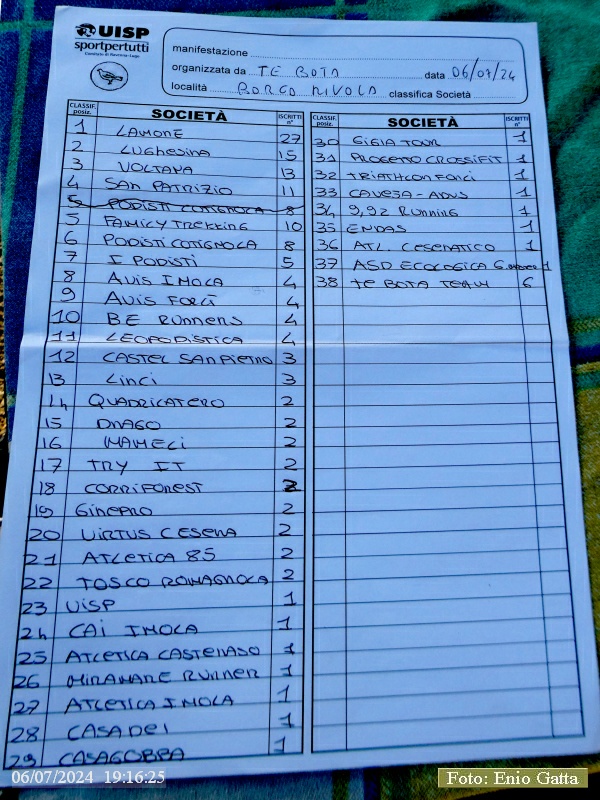 UISP
sportpertutti
Comitato di Ravenna-Lugo
manifestazione
organizzata da TE BOTA data 06/07/24
località BORGO RIVOLA classifica Società
CLASSIF. posiz. SOCIETÀ ISCRITTI n°
1 LAMONE 27
2 LUGHESINA 15
3 VOLTANA 13
4 SAN PATRIZIO 11
5 PODISTI COTIGNOLA 8
5 FAMILY TREKKING 10
6 PODISTI COTIGNOLA 8
7 I PODISTI 5
8 AVIS IMOLA 4
9 AVIS FORLÌ 4
10 BE RUNNERS 4
11 LEOPODISTICA 4
12 CASTEL SAN PIETRO 3
13 LINCI 3
14 QUADRILATERO 2
15 DRAGO 2
16 MAMELI 2
17 TRY IT 2
18 CORRIFOREST 2
19 GINEPRO 2
20 VIRTUS CESENA 2
21 ATLETICA 85 2
22 TOSCO ROMAGNOLA 2
23 UISP 1
24 CAI IMOLA 1
25 ATLETICA CASTENASO 1
26 MIRAMARE RUNNER 1
27 ATLETICA IMOLA 1
28 CASADEI 1
29 CASAGOBBA 1
CLASSIF. posiz. SOCIETÀ ISCRITTI n°
30 GIGIA TOUR 1
31 PROGETTO CROSSIFIT 1
32 TRIATHLON FORLI 1
33 CAVEJA - ADVS 1
34 9,92 RUNNING 1
35 ENDAS 1
36 ATL. CESENATICO 1
37 ASD ECOLOGICA G. 1
38 TE BOTA TEAM 6
06/07/2024 19:16:25
Foto: Enio Gatta